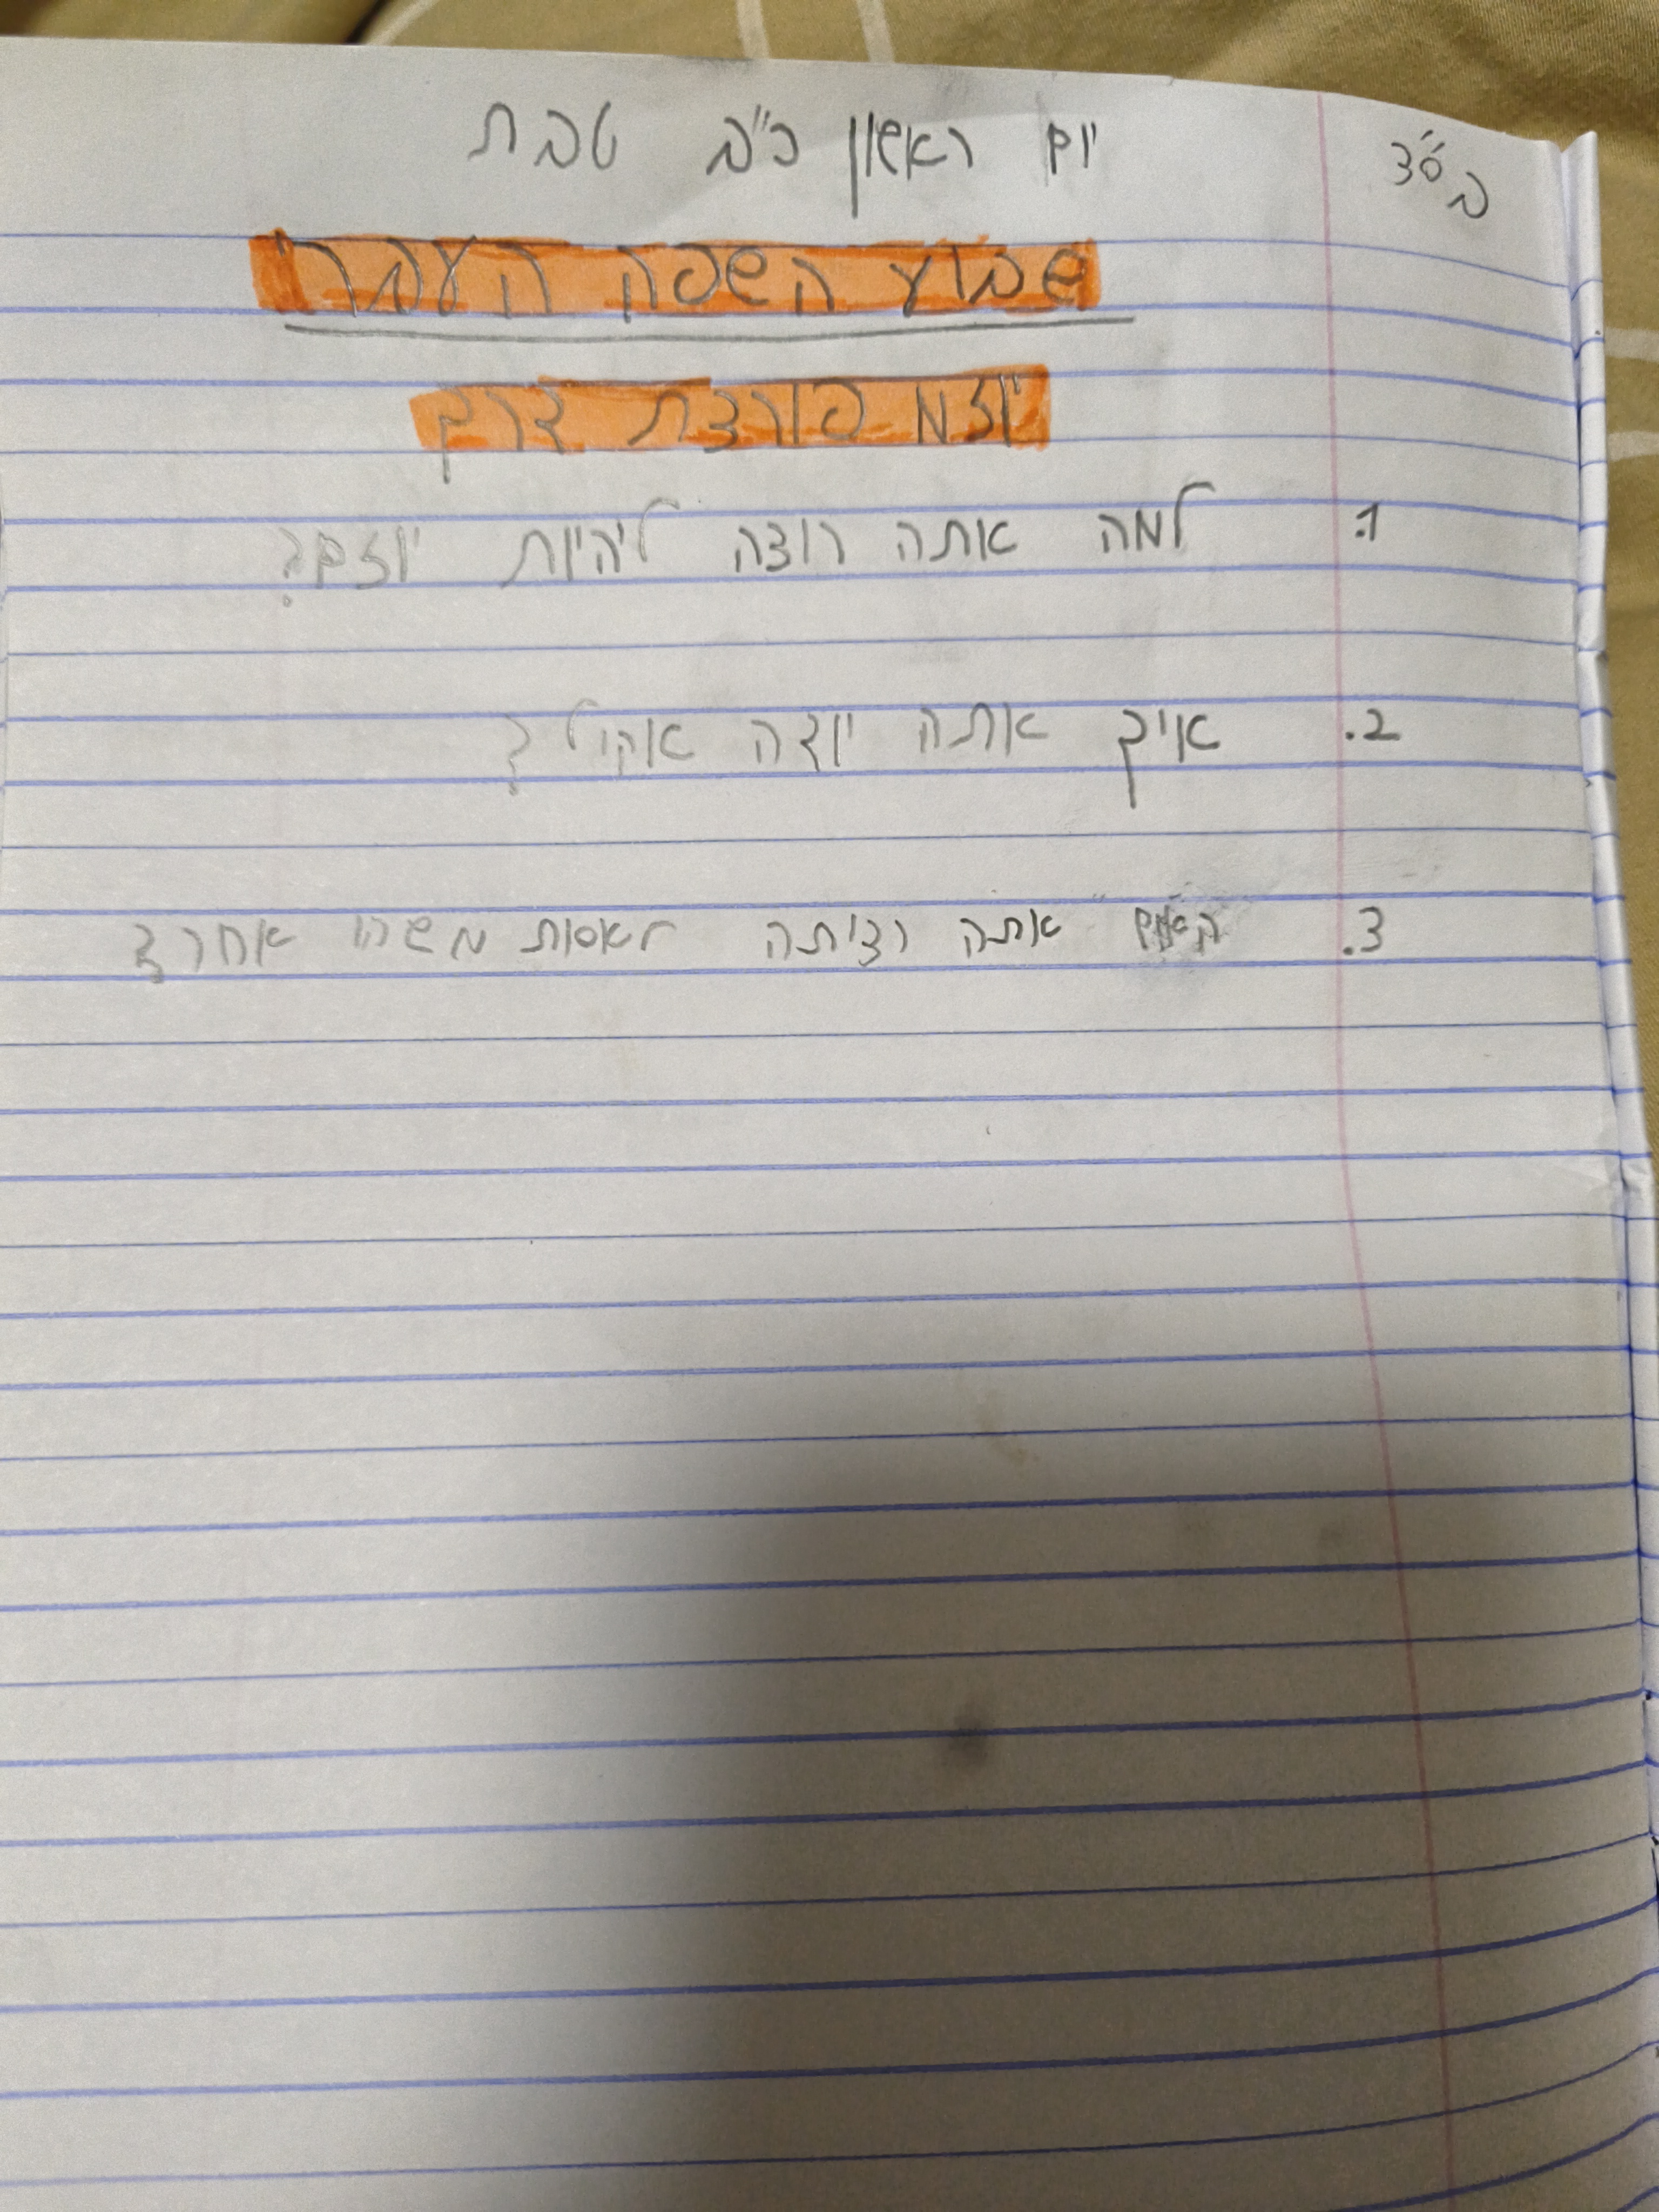 בס"ד
יום ראשון כ"ב טבת
שבוע השפה העברי
יוזמ פורצת דרך
1. למה אתה רוצה להיות יוזם?
2. איך אתה יוצה
3. האם אתה רציתה לאסות משהו אחר?